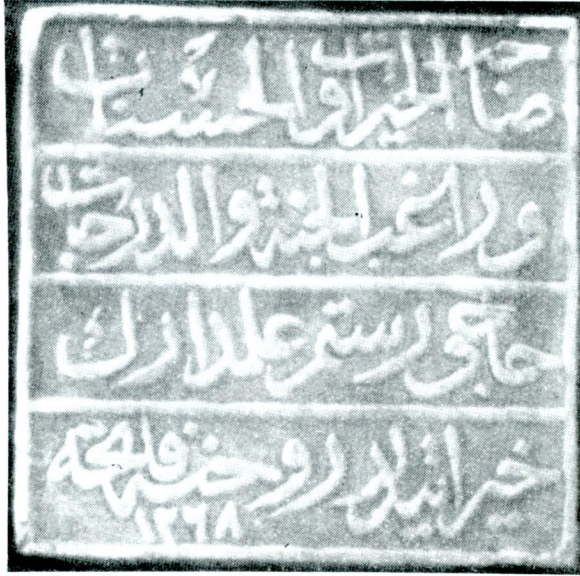 صاحب الخيرات والحسنات
وراغب الجنة والدرجات
حاجى رستم علمدارك
خيراتيدر روحنه فاتحه
١٢٦٨